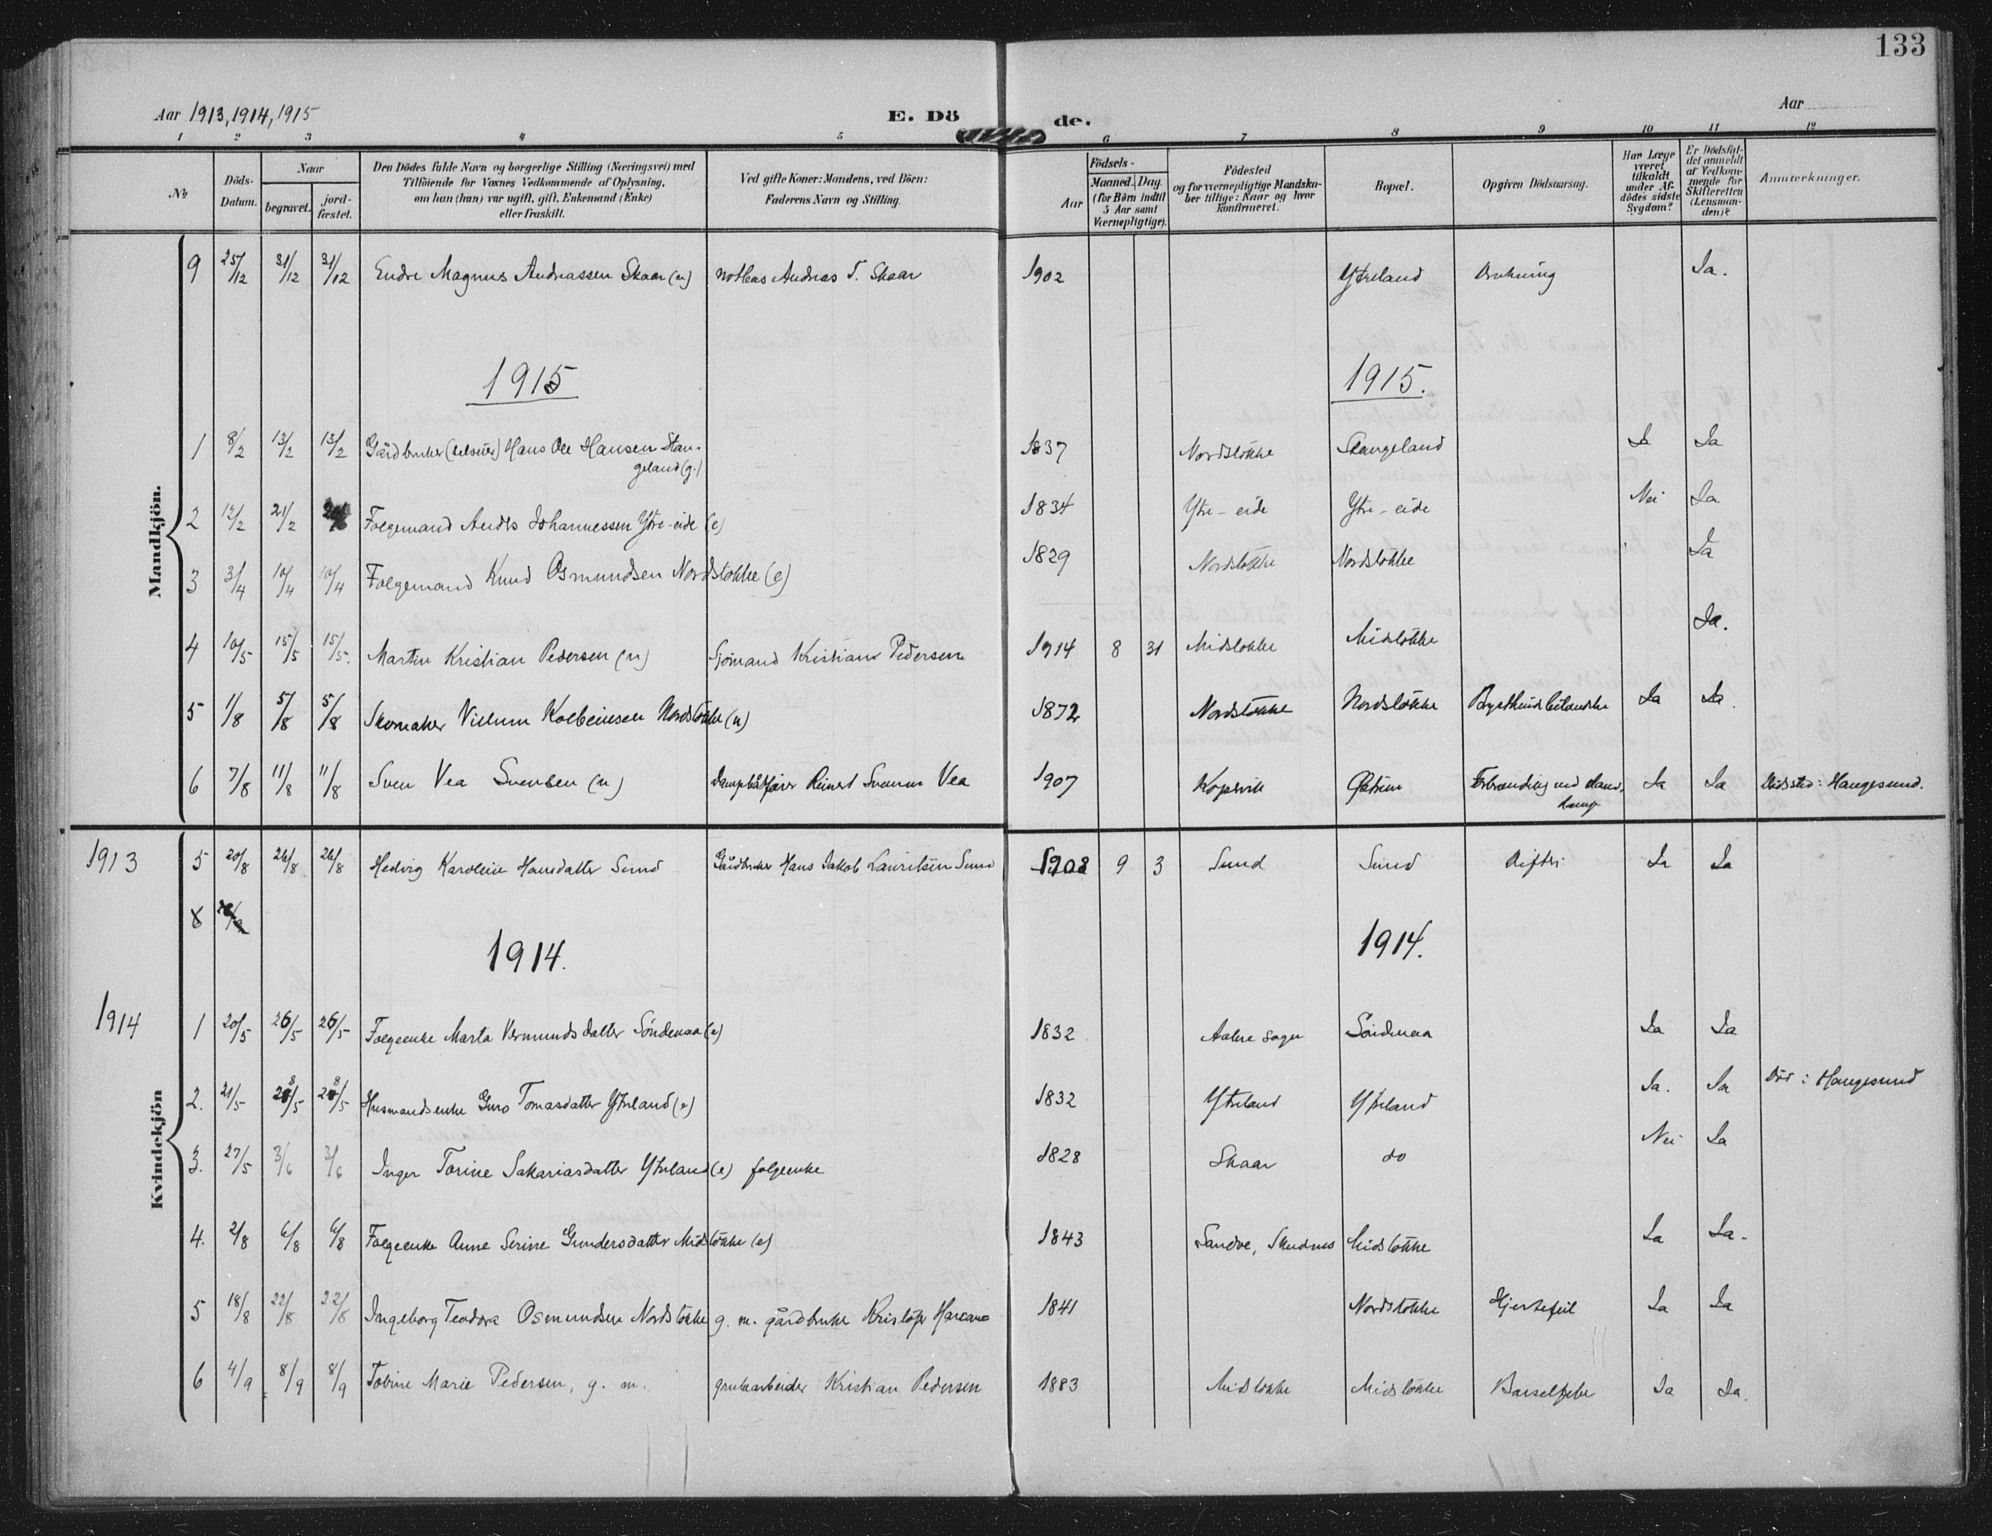 133
Aar 1913, 1914, 1915
E. Dö de.
Aar
1 2 3 4 5 6 7 8 9 10 11 12
No
Döds-Datum.
Naar
begravet.
jord-fæstet.
Den Dödes fulde Navn og borgerlige Stilling (Næringsvei) med
Tilföiende for Voxnes Vedkommende af Oplysning,
om han (hun) var ugift, gift, Enkemand (Enke)
eller fraskilt.
Ved gifte Koner: Mandens, ved Börn:
Faderens Navn og Stilling.
Födsels-
Aar
Maaned. Dag
(for Börn indtil
5 Aar samt
Værnepligtige).
Födested
og for værnepligtige Mandska-
ber tillige: Naar og hvor
Konfirmeret.
Bopæl.
Opgiven Dödsaarsag.
Har Læge
været
tilkaldt
under Af-
dödes sidste
Sygdom?
Er Dödsfal-
det anmeldt
af Vedkom-
mende for
Skifteretten
(Lensman-
den)?
Anmerkninger.
Mandkjön.
9 25/12 31/12 31/12 Endre Magnus Andreassen Skaar (u) Andreas T. Skaar 1902 Ytreland Drukning Ja.
1915 1915.
1 8/2 13/2 13/2 Gårdbruker Hans Ole Hansen Stan-
geland (g.) 1837 Nordstokke Stangeland Ja Ja
2 12/2 21/2 Folgemand Anders Johannessen Ytre-eide (e) 1834 Ytre-eide Ytre-eide Nei Ja
3 3/4 10/4 10/4 Folgemand Knud Osmundsen Nordstokke (e) 1829 Nordstokke Nordstokke Ja
4 10/5 15/5 15/5. Martin Kristian Pedersen (u) Sjömand Kristian Pedersen 1914 8 31 Midstokke Midstokke Ja.
5 1/8 5/8 5/8 Skomaker Villum Kolbeinsen Nordstokke (u) 1872 Nordstokke Nordstokke Ja Ja
6 7/8 11/8 11/8 Sven Vea Svensen (u) Reinert Svensen Vea 1907 Kopervik Forbrænding ved
damp Ja Ja Dödssted: Haugesund.
1913 5 20/8 26/8 26/8 Hedvig Karoline Hansdatter Sund Gårdbruker Hans Jakob Lauritsen Sund 1908 9 3 Sund Sund Difteri Ja Ja
8
1914. 1914.
Kvindekjön
1914 1 20/5 26/5 26/5 Folgeenke Marta Vermundsdatter Söndenaa (e) 1832 Söndenaa Ja Ja
2. 21/5 28/5 28/5 Husmandsenke Guro Tomasdatter Ytreland (e) 1832 Ytreland Ytreland Ja. Ja Död: Haugesund
3. 27/5 3/6 3/6 Inger Torine Sakariasdatter Ytreland (e) folgeenke 1828 Skaar do Nei Ja
4. 2/8 6/8 6/8 Folgeenke Anne Serine Gundersdatter Midstokke (e) 1843 Sandve, Skudnes Midstokke Ja Ja.
5 18/8 22/8 22/8 Ingeborg Teodora Osmundsen Nordstokke g. m. gårdbruker Kristofer 1841 Nordstokke Hjertefeil Ja Ja
6 4/9 8/9 8/9 Tobine Marie Pedersen, g. m. grubearbeider Kristian Pedersen 1883 Midstokke Midstokke Barselfeber Ja Ja.